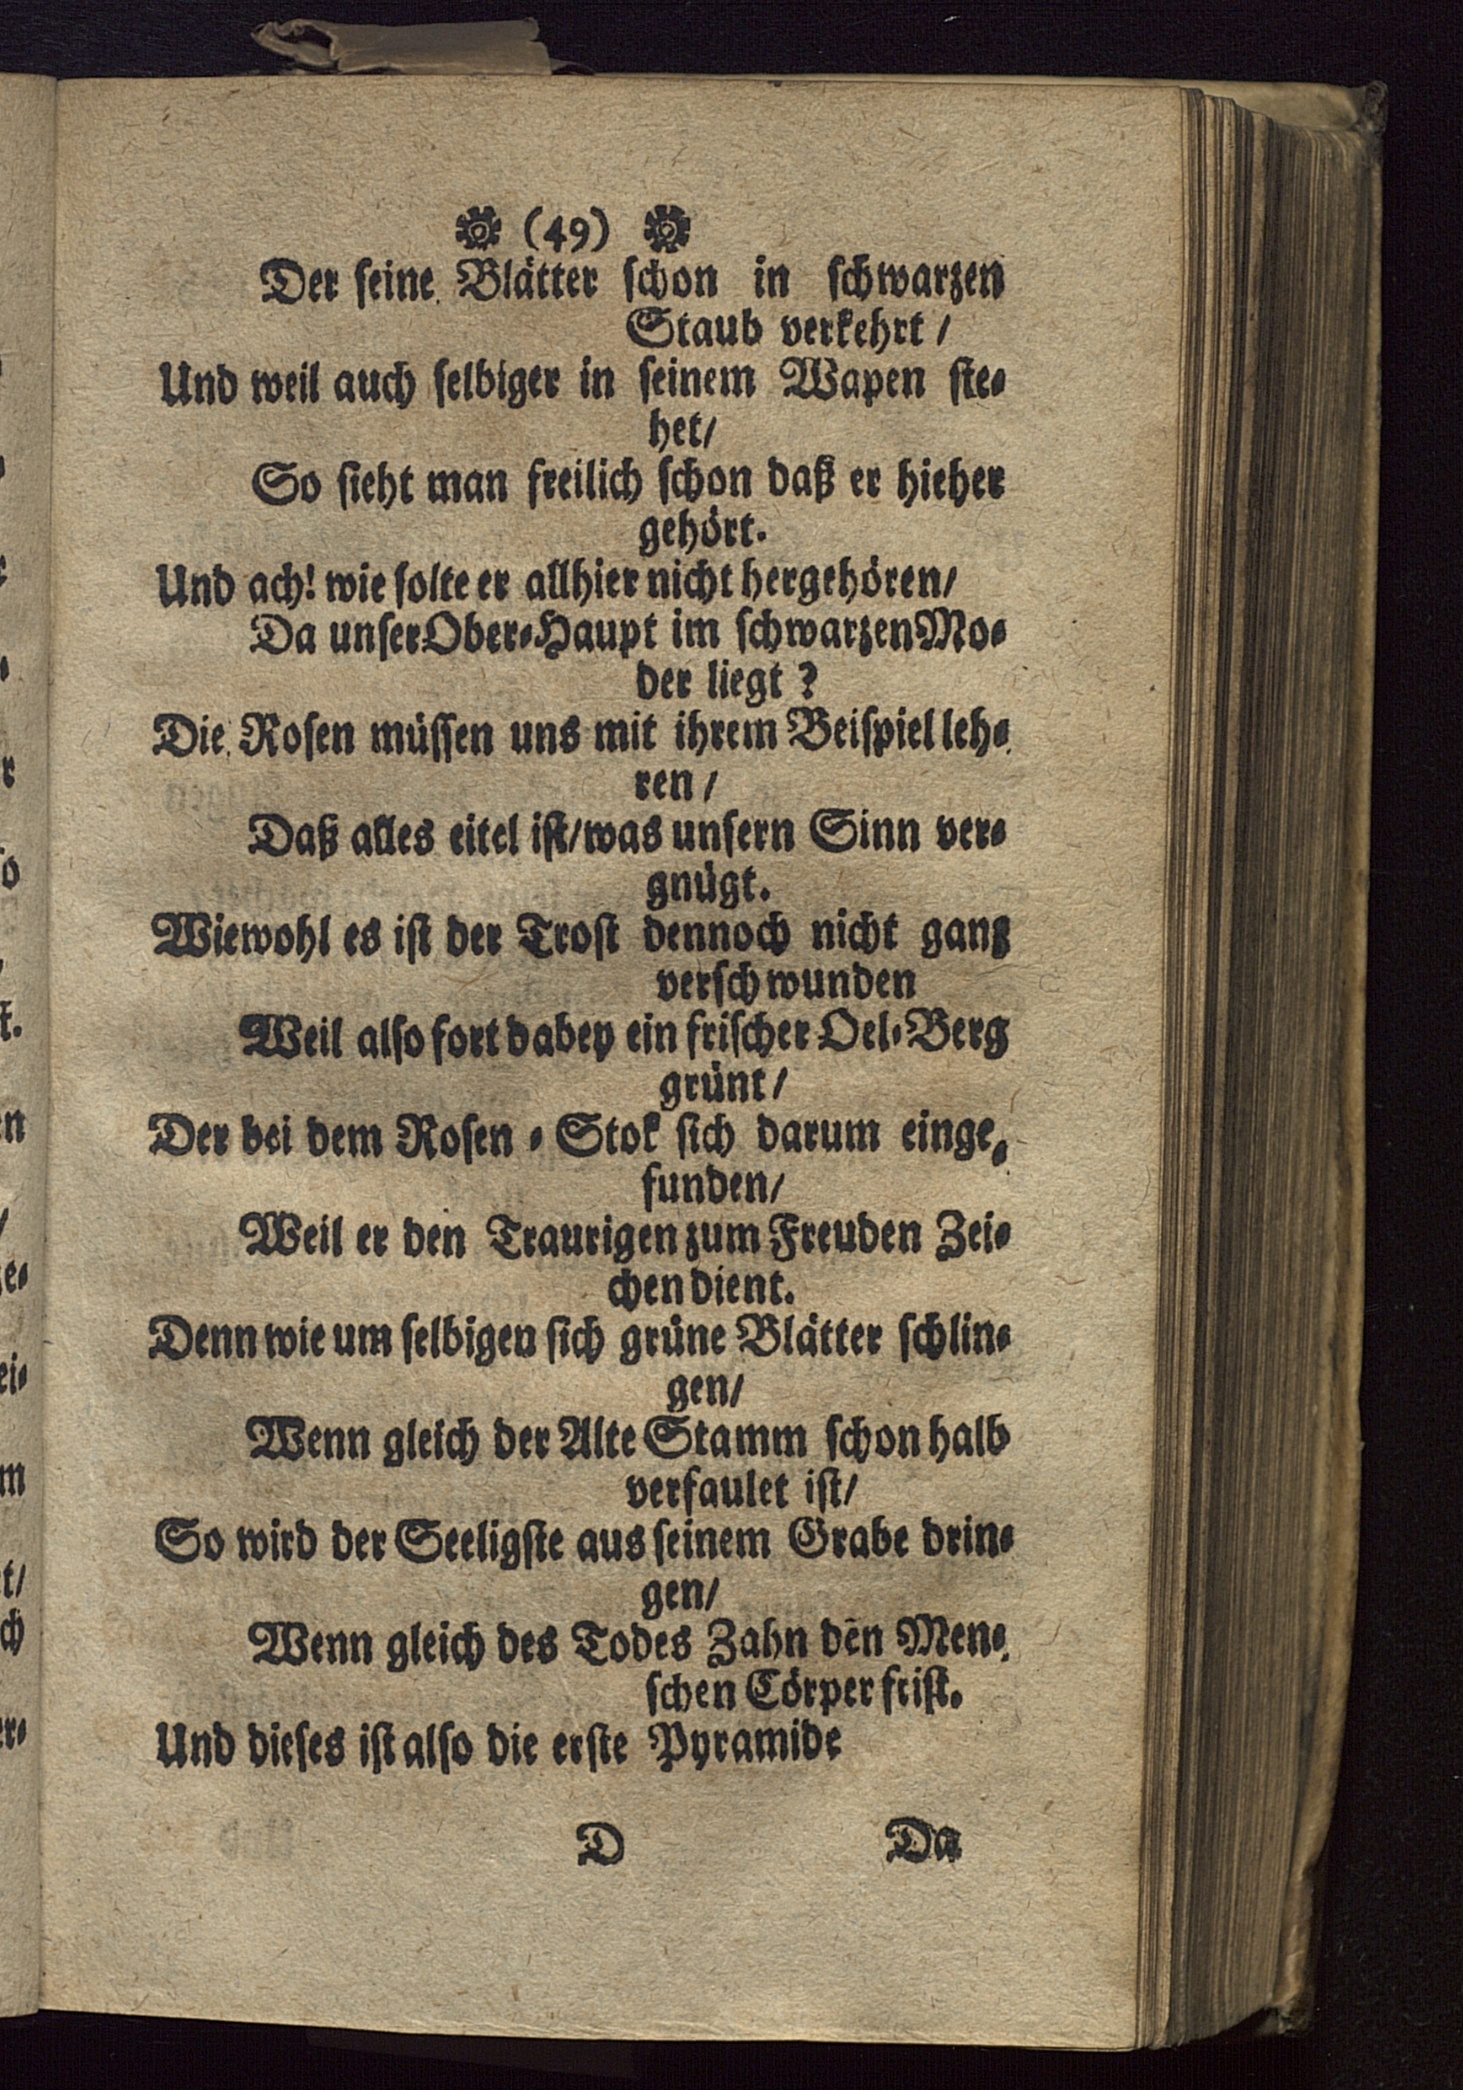 (49)
Der ſeine Blätter ſchon in ſchwarzen
Staub verkehrt /
Und weil auch ſelbiger in ſeinem Wapen ſte⸗
het/
So ſieht man freilich ſchon daß er hieher
gehört.
Und ach! wie ſolte er allhier nicht hergehören/
Da unſer Ober⸗Haupt im ſchwarzen Mo⸗
der liegt ?
Die Roſen müſſen uns mit ihrem Beiſpiel leh⸗
ren /
Daß alles eitel iſt/ was unſern Sinn ver⸗
gnügt.
Wiewohl es iſt der Troſt dennoch nicht gantz
verſchwunden
Weil alſo fort dabey ein friſcher Oel⸗Berg
grünt/
Der bei dem Roſen ⸗ Stok ſich darum einge⸗
funden/
Weil er den Traurigen zum Freuden Zei⸗
chen dient.
Denn wie um ſelbigen ſich grüne Blätter ſchlin⸗
gen/
Wenn gleich der Alte Stamm ſchon halb
verfaulet iſt/
So wird der Seeligſte aus ſeinem Grabe drin⸗
gen/
Wenn gleich des Todes Zahn den Men⸗
ſchen Cörper friſt.
Und dieſes iſt alſo die erſte Pyramide
D Da